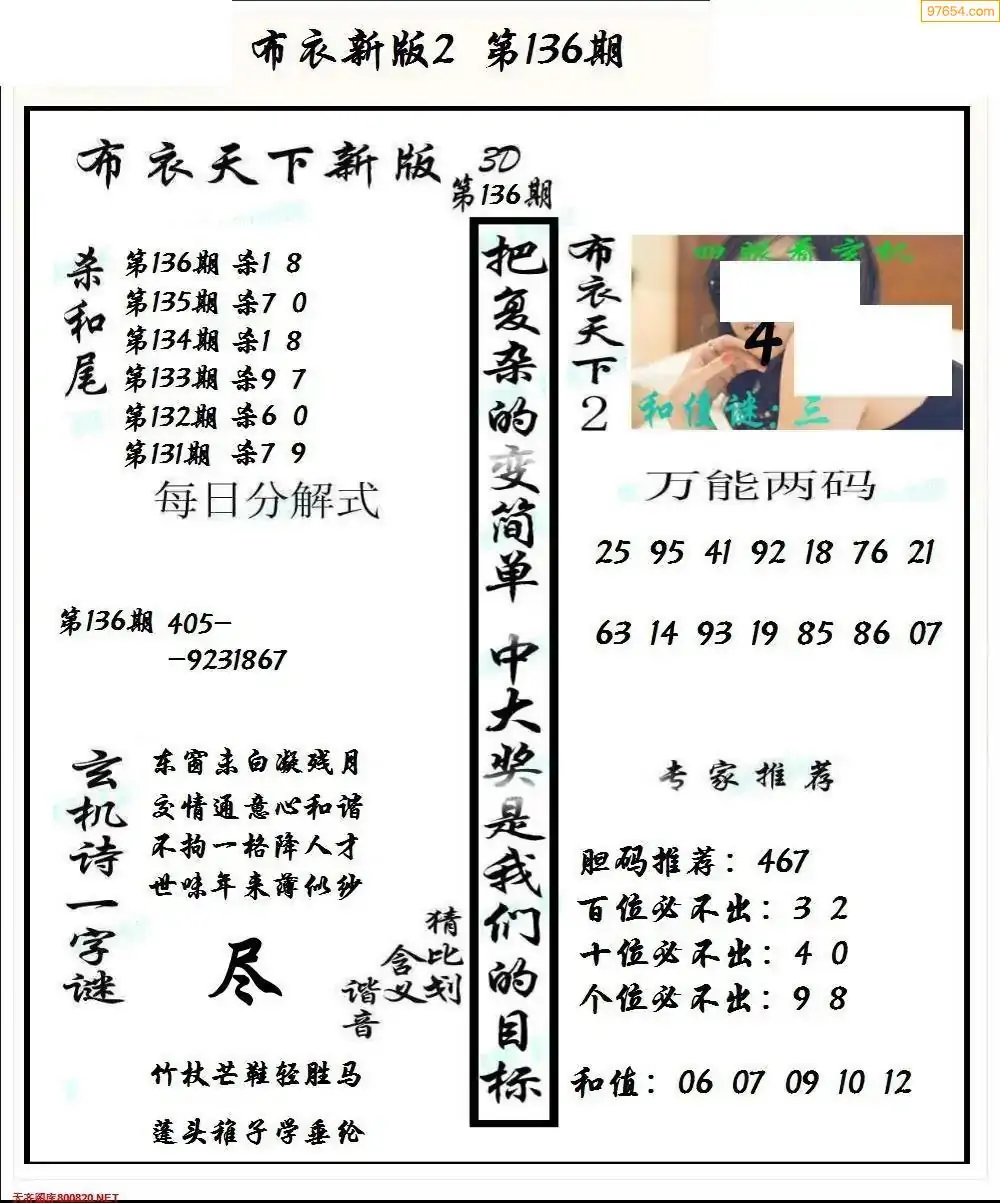 97654.com
布衣新版2 第136期
布衣天下新版 3D
第136期
杀和尾
第136期 杀1 8
第135期 杀7 0
第134期 杀1 8
第133期 杀9 7
第132期 杀6 0
第131期 杀7 9
每日分解式
第136期 405-
-9231867
玄机诗一字谜
东窗未白凝残月
交情通意心和谐
不拘一格降人才
世味年来薄似纱
尽
猜比划
含义
谐音
竹杖芒鞋轻胜马
蓬头稚子学垂纶
把复杂的变简单 中大奖是我们的目标
布衣天下2
四眼看玄机
4
和值谜:三
万能两码
25 95 41 92 18 76 21
63 14 93 19 85 86 07
专家推荐
胆码推荐：467
百位必不出：3 2
十位必不出：4 0
个位必不出：9 8
和值：06 07 09 10 12
天齐图库800820.NET